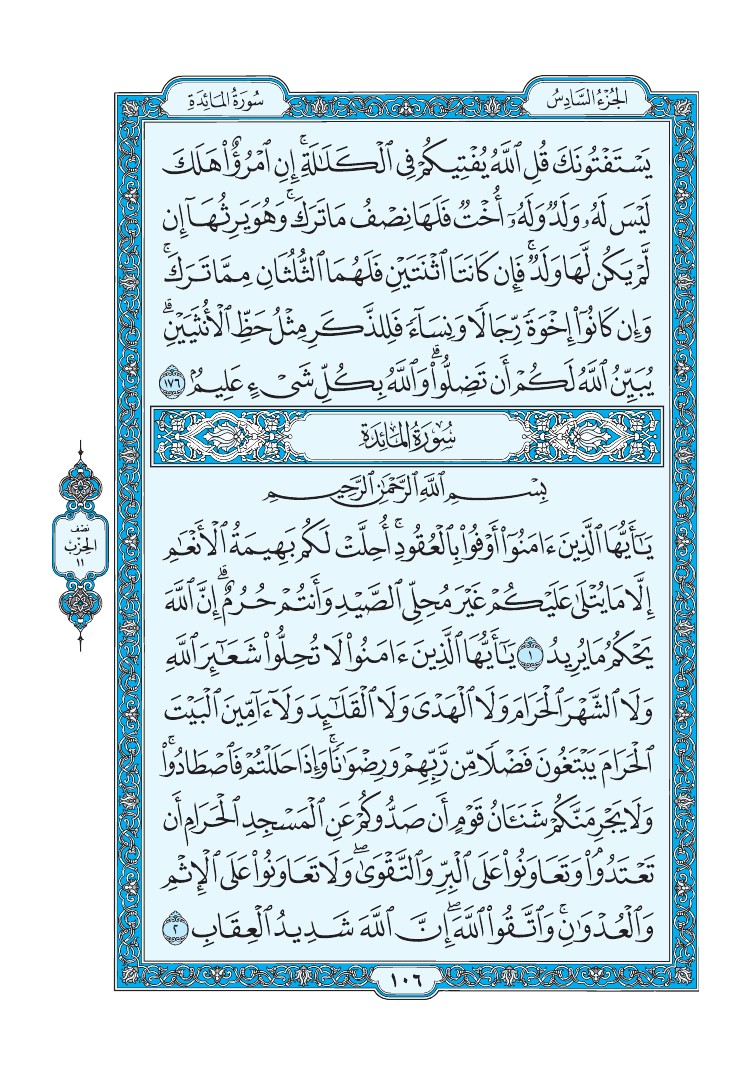 الجُزْءُ السَّادِسُ
سُورَةُ المَائِدَةِ
يَسۡتَفۡتُونَكَ قُلِ ٱللَّهُ يُفۡتِيكُمۡ فِي ٱلۡكَلَٰلَةِۚ إِنِ ٱمۡرُؤٌاْ هَلَكَ
لَيۡسَ لَهُۥ وَلَدٞ وَلَهُۥٓ أُخۡتٞ فَلَهَا نِصۡفُ مَا تَرَكَۚ وَهُوَ يَرِثُهَآ إِن
لَّمۡ يَكُن لَّهَا وَلَدٞۚ فَإِن كَانَتَا ٱثۡنَتَيۡنِ فَلَهُمَا ٱلثُّلُثَانِ مِمَّا تَرَكَۚ
وَإِن كَانُوٓاْ إِخۡوَةٗ رِّجَالٗا وَنِسَآءٗ فَلِلذَّكَرِ مِثۡلُ حَظِّ ٱلۡأُنثَيَيۡنِۗ
يُبَيِّنُ ٱللَّهُ لَكُمۡ أَن تَضِلُّواْۗ وَٱللَّهُ بِكُلِّ شَيۡءٍ عَلِيمُۢ ١٧٦
سُورَةُ المَائِدَةِ
بِسۡمِ ٱللَّهِ ٱلرَّحۡمَٰنِ ٱلرَّحِيمِ
يَٰٓأَيُّهَا ٱلَّذِينَ ءَامَنُوٓاْ أَوۡفُواْ بِٱلۡعُقُودِۚ أُحِلَّتۡ لَكُم بَهِيمَةُ ٱلۡأَنۡعَٰمِ
إِلَّا مَا يُتۡلَىٰ عَلَيۡكُمۡ غَيۡرَ مُحِلِّي ٱلصَّيۡدِ وَأَنتُمۡ حُرُمٌۗ إِنَّ ٱللَّهَ
يَحۡكُمُ مَا يُرِيدُ ١ يَٰٓأَيُّهَا ٱلَّذِينَ ءَامَنُواْ لَا تُحِلُّواْ شَعَٰٓئِرَ ٱللَّهِ
وَلَا ٱلشَّهۡرَ ٱلۡحَرَامَ وَلَا ٱلۡهَدۡيَ وَلَا ٱلۡقَلَٰٓئِدَ وَلَآ ءَآمِّينَ ٱلۡبَيۡتَ
ٱلۡحَرَامَ يَبۡتَغُونَ فَضۡلٗا مِّن رَّبِّهِمۡ وَرِضۡوَٰنٗاۚ وَإِذَا حَلَلۡتُمۡ فَٱصۡطَادُواْۚ
وَلَا يَجۡرِمَنَّكُمۡ شَنَـَٔانُ قَوۡمٍ أَن صَدُّوكُمۡ عَنِ ٱلۡمَسۡجِدِ ٱلۡحَرَامِ أَن
تَعۡتَدُواْۘ وَتَعَاوَنُواْ عَلَى ٱلۡبِرِّ وَٱلتَّقۡوَىٰۖ وَلَا تَعَاوَنُواْ عَلَى ٱلۡإِثۡمِ
وَٱلۡعُدۡوَٰنِۚ وَٱتَّقُواْ ٱللَّهَۖ إِنَّ ٱللَّهَ شَدِيدُ ٱلۡعِقَابِ ٢
نصف
الحِزْبِ
١١
١٠٦